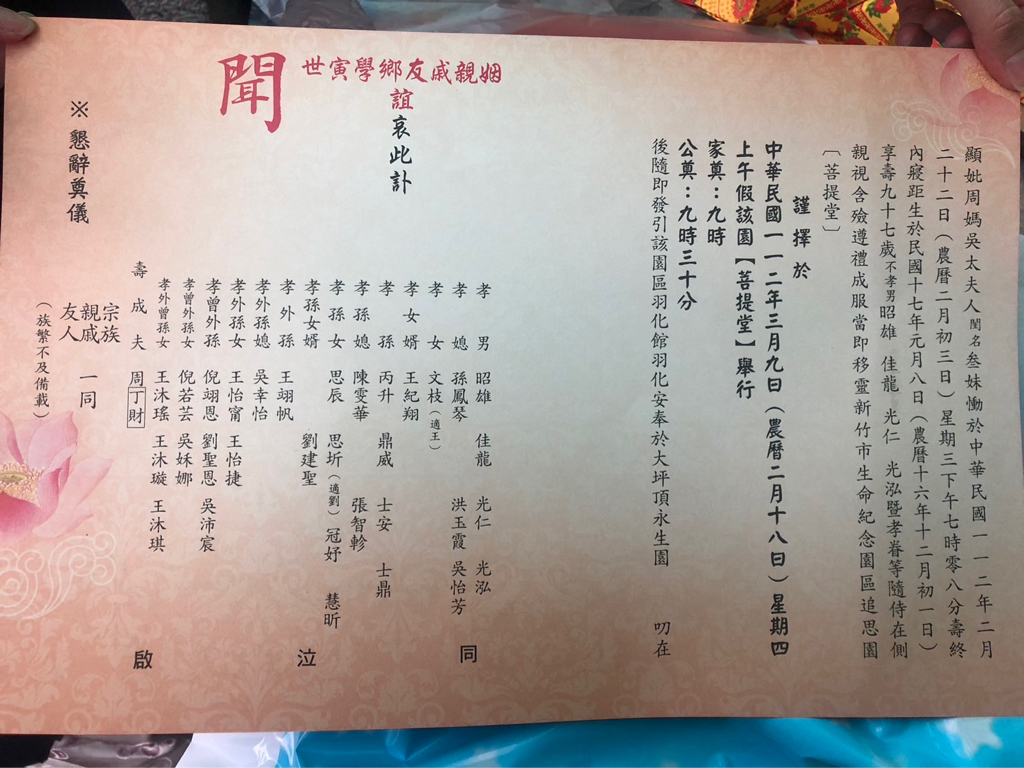 顯妣周媽吳太夫人閨名叁妹慟於中華民國一一二年二月
二十二日(農曆二月初三日)星期三下午七時零八分壽終
內寢距生於民國十七年元月八日(農曆十六年十二月初一日)
享壽九十七歲不孝男昭雄 佳龍 光仁 光泓暨孝眷等隨侍在側
親視含殮遵禮成服當即移靈新竹市生命紀念園區追思園
〔菩提堂〕
謹擇於
中華民國一一二年三月九日(農曆二月十八日)星期四
上午假該園【菩提堂】舉行
家奠:九時
公奠:九時三十分
後隨即發引該園區羽化館羽化安奉於大坪頂永生園 叨在
姻親戚友鄉學寅世
誼哀此訃
聞
孝男 昭雄 佳龍 光仁 光泓
孝媳 孫鳳琴 洪玉霞 吳怡芳
孝女 文枝(適王)
孝女婿 王紀翔
孝孫 丙升 鼎威 士安 士鼎
孝孫媳 陳雯華 張智軫
孝孫女 思辰 思圻(適劉) 冠妤 慧昕
孝孫女婿 劉建聖
孝外孫 王翊帆
孝外孫媳 吳幸怡
孝外孫女 王怡甯 王怡捷
孝曾外孫 倪翊恩 劉聖恩 吳沛宸
孝曾外孫女 倪若芸 吳姀娜
孝外曾孫女 王沐瑤 王沐璇 王沐琪
壽成夫 周丁財
同泣啟
宗族
親戚 一同
友人
(族繁不及備載)
※懇辭奠儀